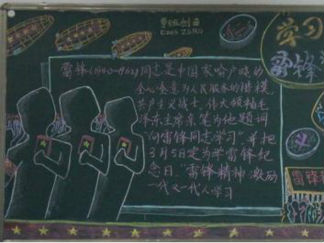 学习
雷锋
雷锋(1940-1962)同志是中国家喻户晓的
全心全意为人民服务的楷模,
共产主义战士,伟大领袖毛
泽东主席亲笔为他题词
“向雷锋同志学习”,并把
3月5日定为学雷锋纪
念日。雷锋精神激励
一代又一代人学习
雷锋